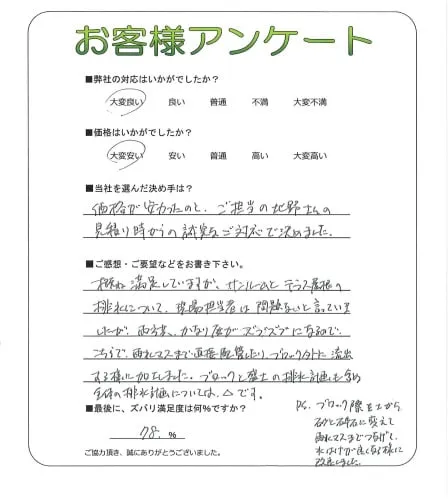 お客様アンケート
■弊社の対応はいかがでしたか?
大変良い 良い 普通 不満 大変不満
■価格はいかがでしたか?
大変安い 安い 普通 高い 大変高い
■当社を選んだ決め手は?
価格が安かったのと、ご担当の北野さんの
見積り時からの誠実なご対応で決めました。
■ご感想・ご要望などをお書き下さい。
概ね満足していますが、サンルームとテラス屋根の
排水について、現場担当者は問題ないと言っていま
したが、雨方、かなり庭がズブズブになるので、
こちらで、雨水マスまで直接配管したり、ブロック外に流出
する様に加工しました。ブロックと盛土の排水計画も含め
全体の排水計画については、△です。
■最後に、ズバリ満足度は何%ですか?
78. %
ご協力頂き、誠にありがとうございました。
P.S. ブロック際を土から
砂と砕石に変えて
雨水マスまでつなげて、
水はけが良くなる様に
改良しました。